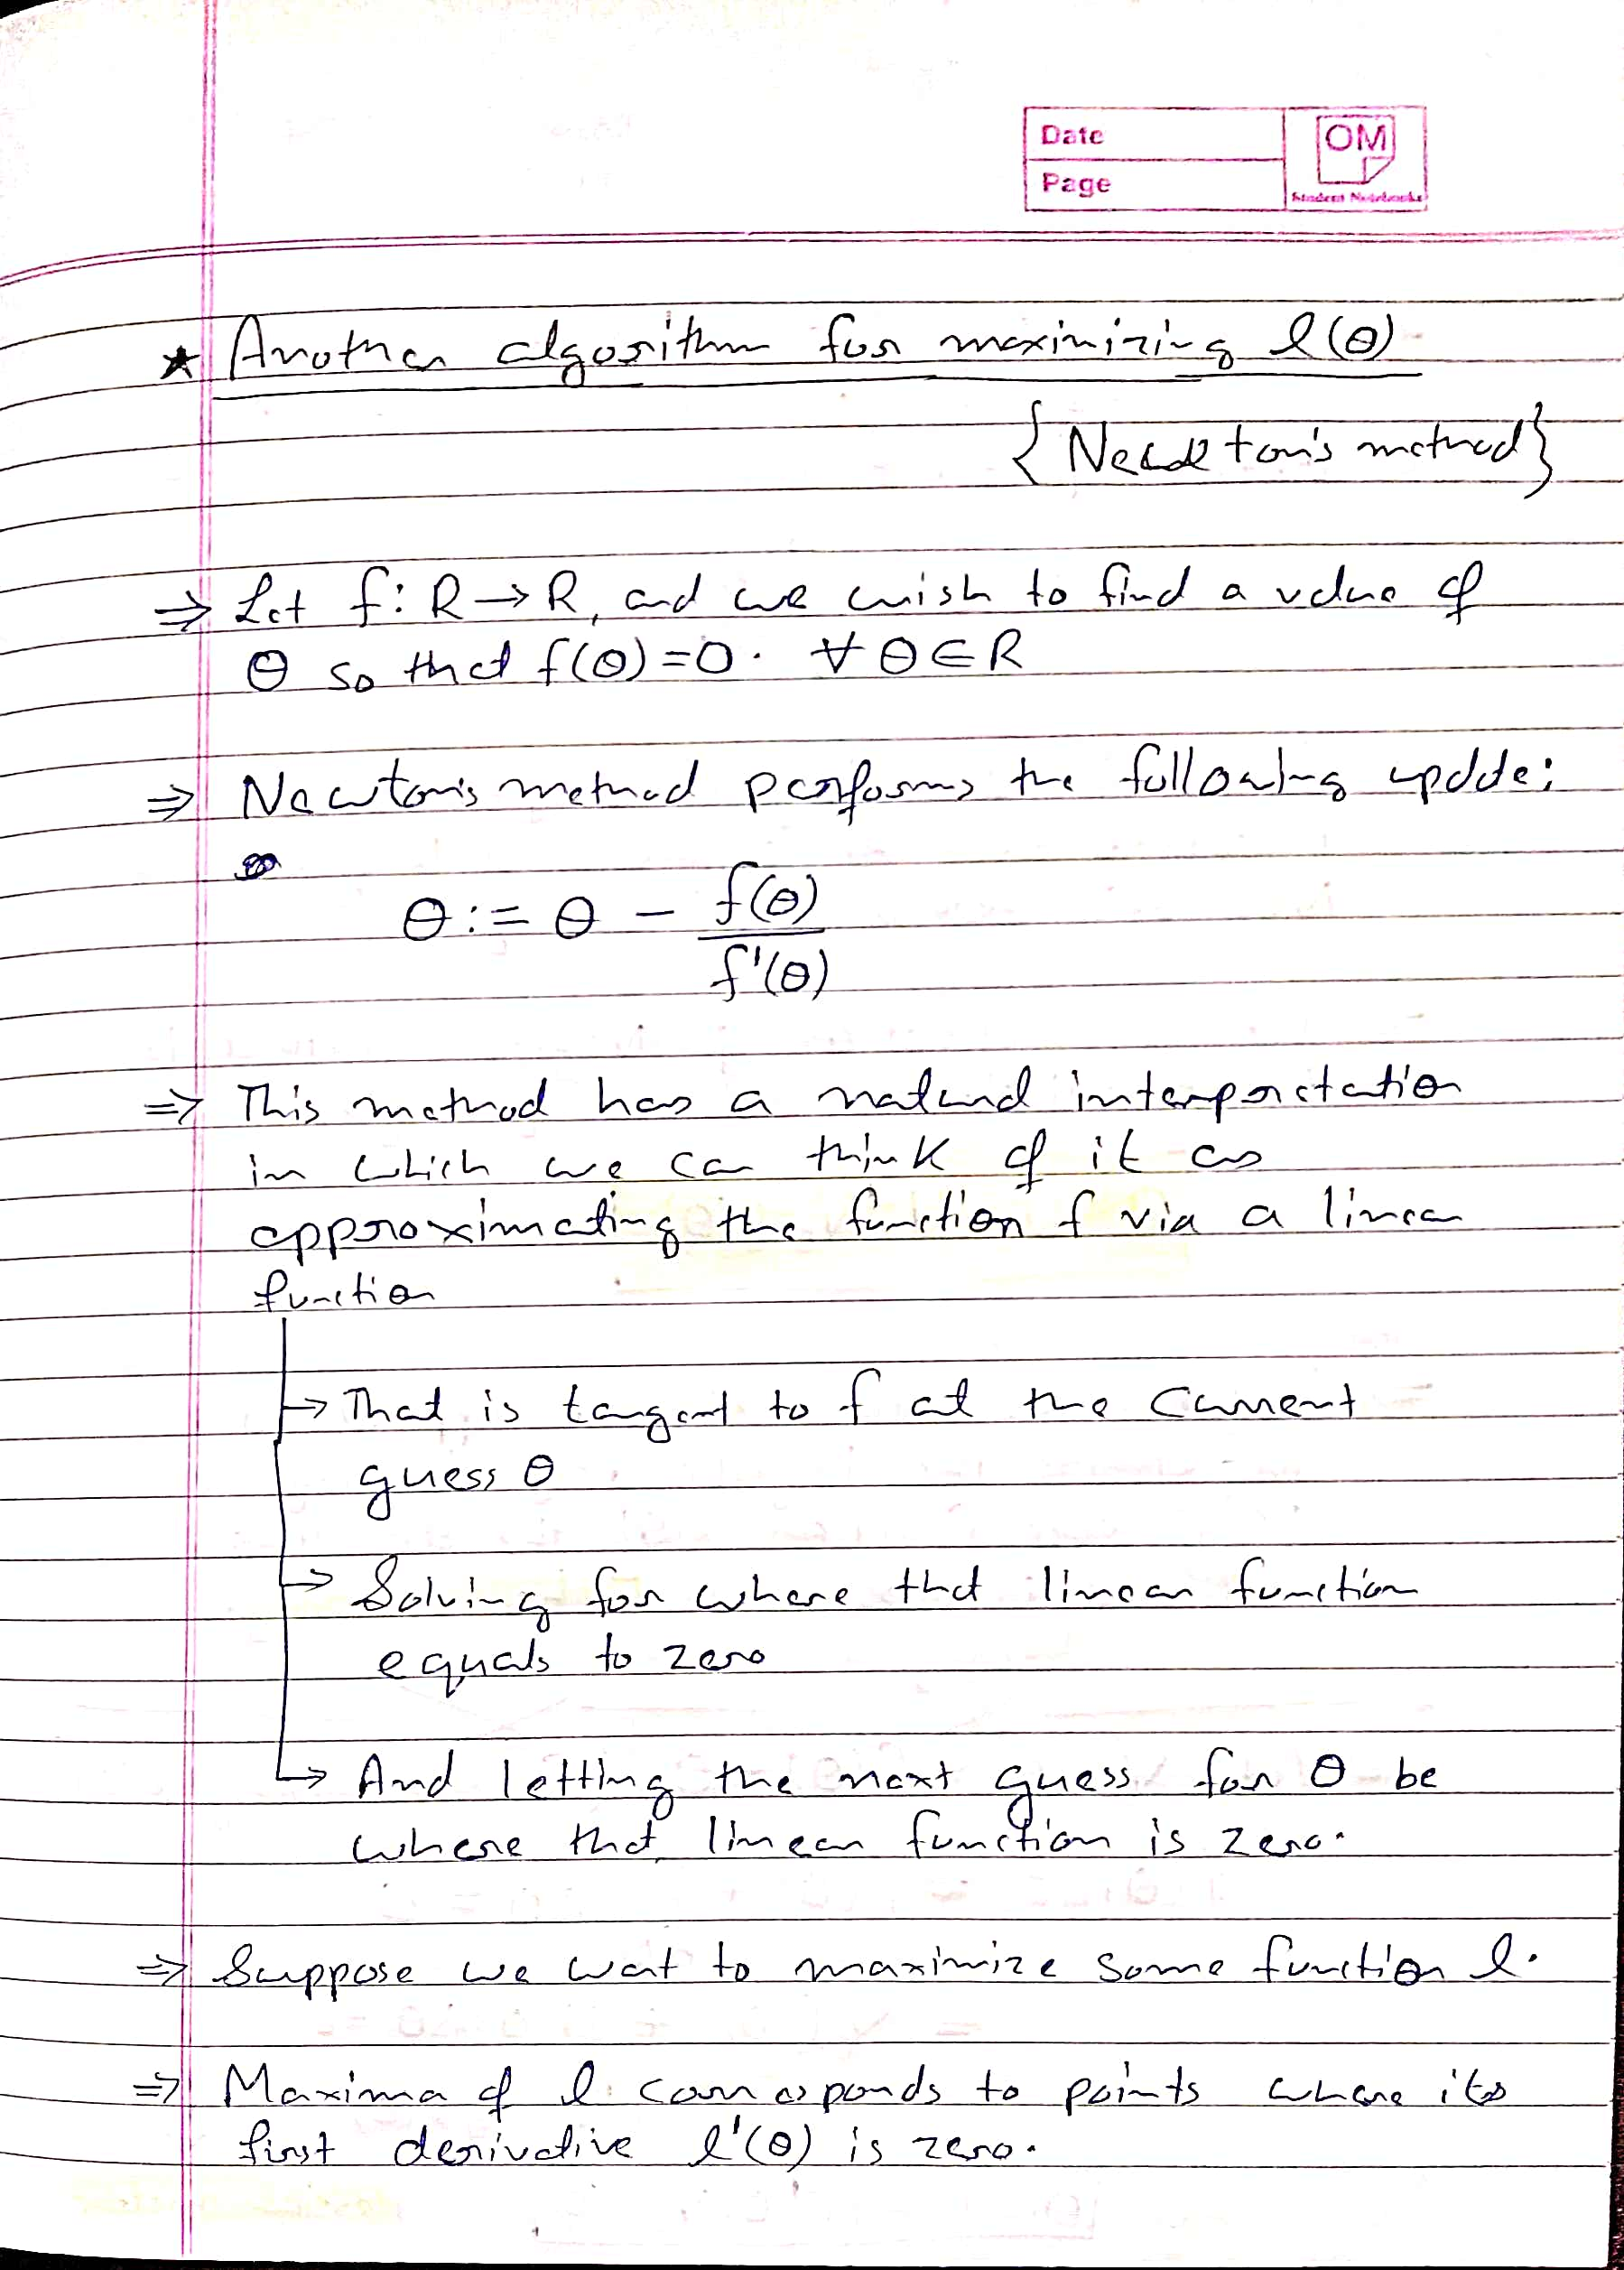 Date
Page
OM
Student Notebooks
★ Another algorithm for maximizing l(θ)
{Newton's method}
⇒ Let f: R → R, and we wish to find a value of
θ so that f(θ) = 0. ∀ θ ∈ R
⇒ Newton's method performs the following update:
θ := θ - f(θ)
f'(θ)
⇒ This method has a natural interpretation
in which we can think of it as
approximating the function f via a linear
function
→ That is tangent to f at the current
guess θ
→ Solving for where that linear function
equals to zero
↳ And letting the next guess for θ be
where that linear function is zero.
⇒ Suppose we want to maximize some function l.
⇒ Maxima of l corresponds to points where its
first derivative l'(θ) is zero.